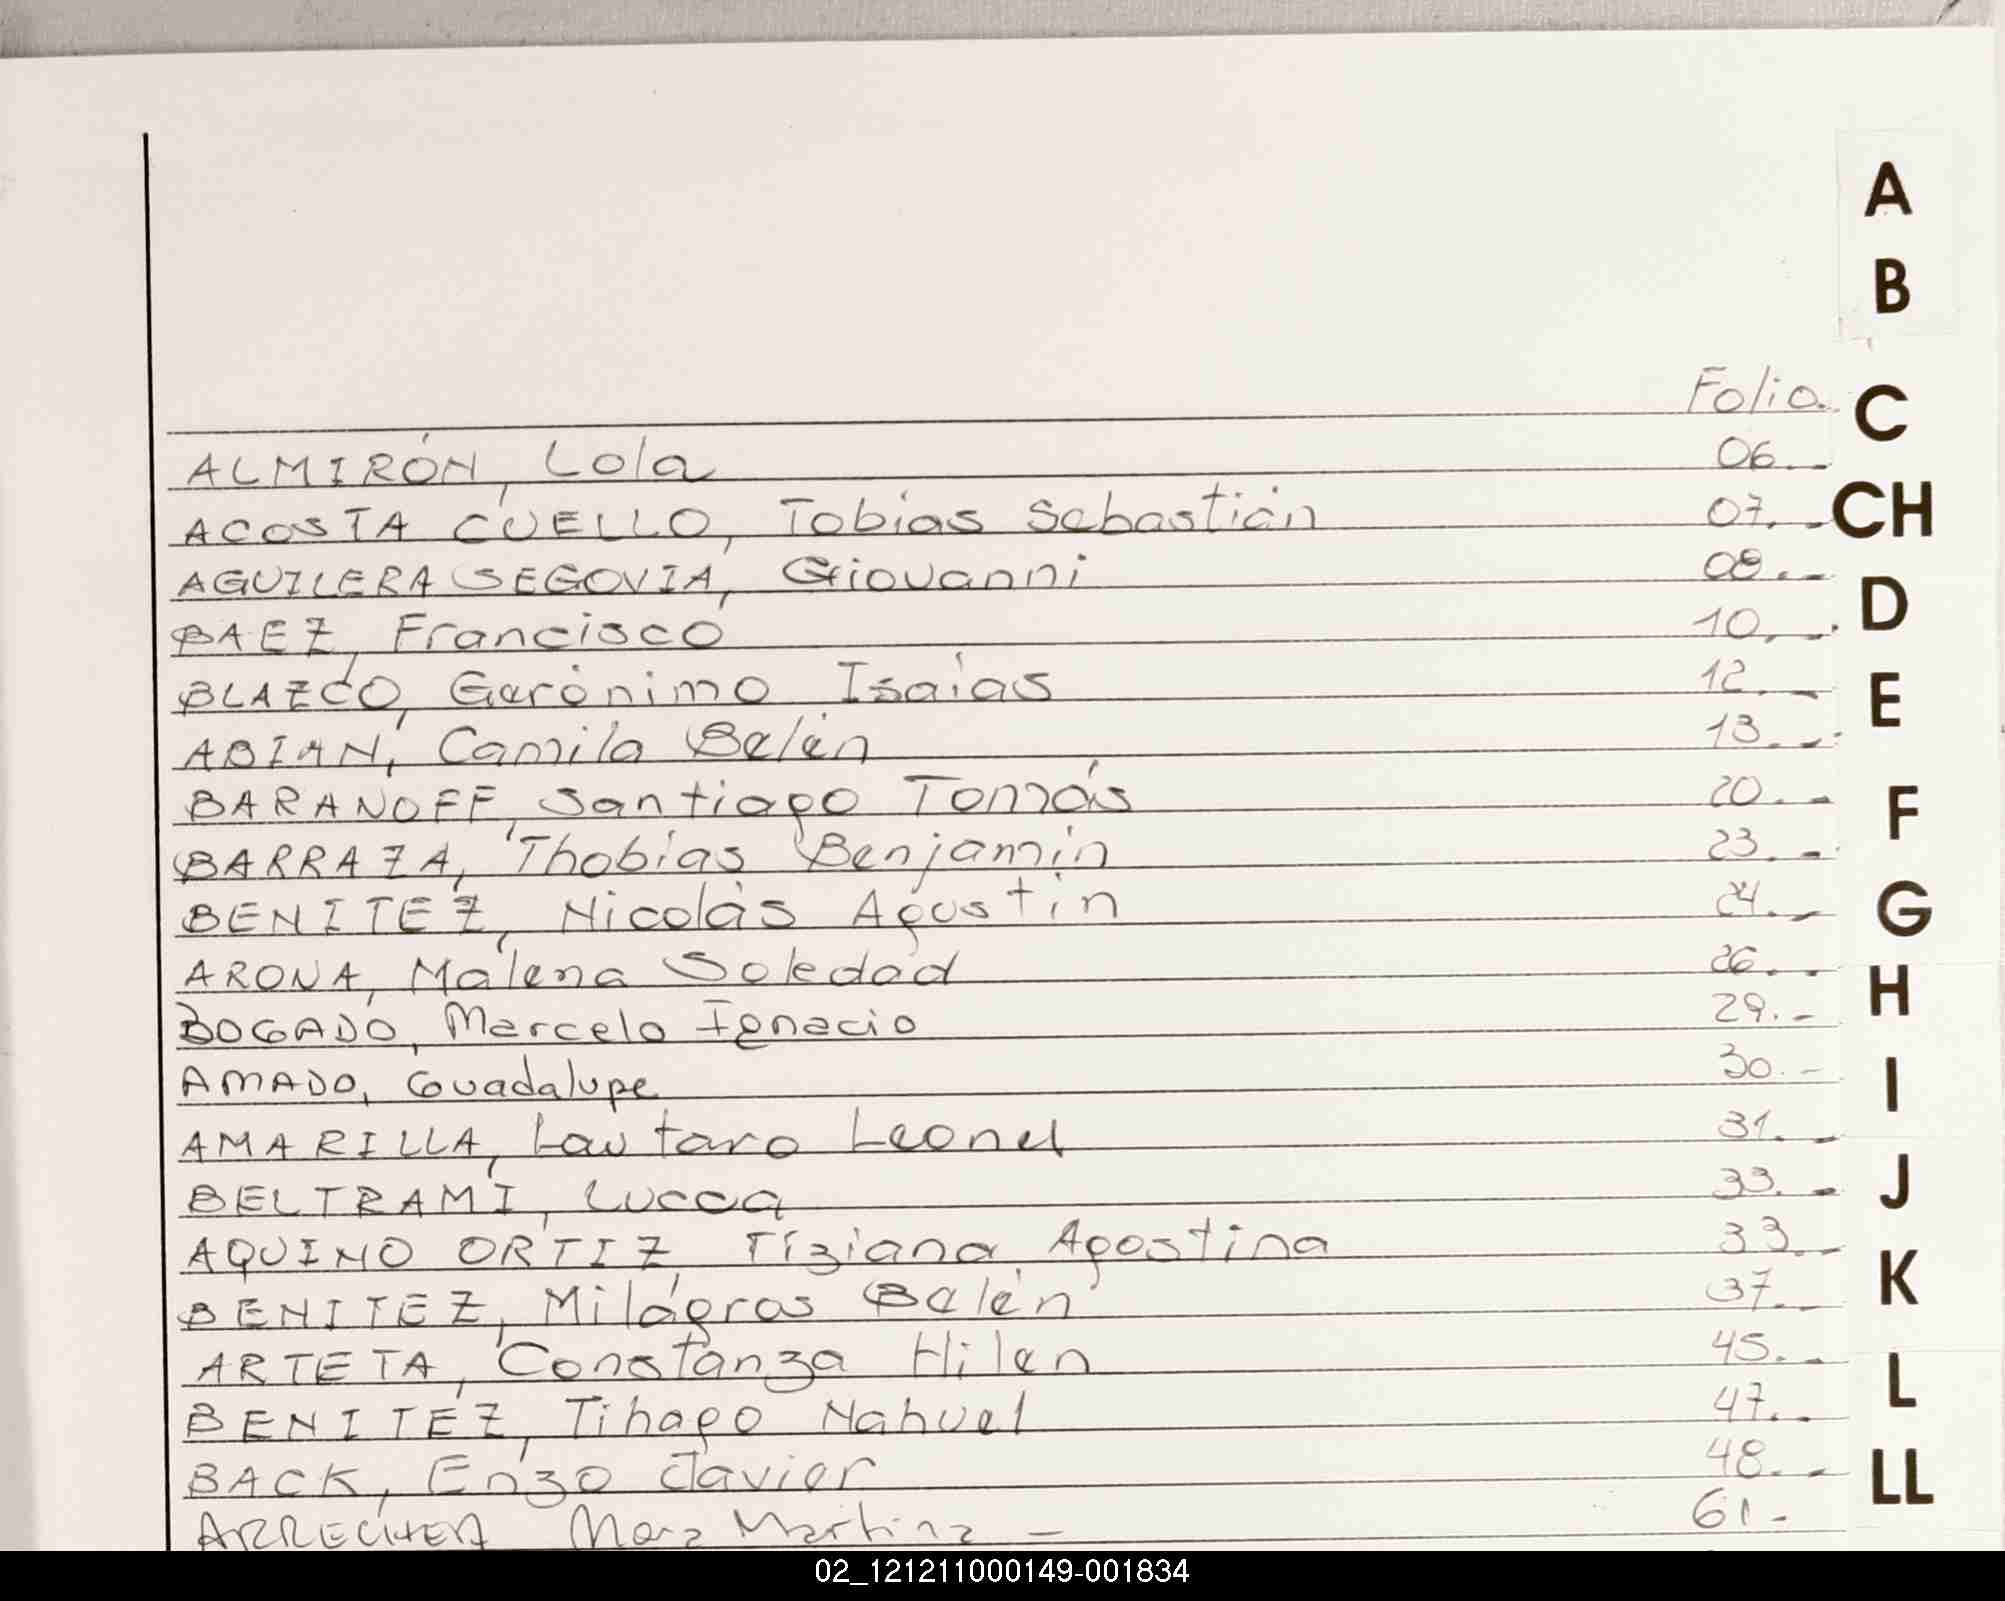 A
B
Folio.
C
ALMIRÓN, Lola 06.-
ACOSTA CUELLO, Tobías Sebastián 07.-
CH
AGUILERA SEGOVIA, Giovanni 08.-
D
BAEZ, Francisco 10.-
BLAZCO, Gerónimo Isaías 12.-
E
ABIAN, Camila Belén 13.-
BARANOFF, Santiago Tomás 20.-
F
BARRAZA, Thobías Benjamín 23.-
BENITEZ, Nicolás Agustín 24.-
G
ARONA, Malena Soledad 26.-
H
BOGADO, Marcelo Ignacio 29.-
AMADO, Guadalupe 30.-
I
AMARILLA, Lautaro Leonel 31.-
BELTRAMI, Lucca 33.-
J
AQUINO ORTIZ Tiziana Agostina 33.-
BENITEZ, Milagros Belén 37.-
K
ARTETA, Constanza Hilen 45.-
L
BENITEZ, Tihago Nahuel 47.-
BACK, Enzo Javier 48.-
LL
Mara Martina - 61.-
02_121211000149-001834